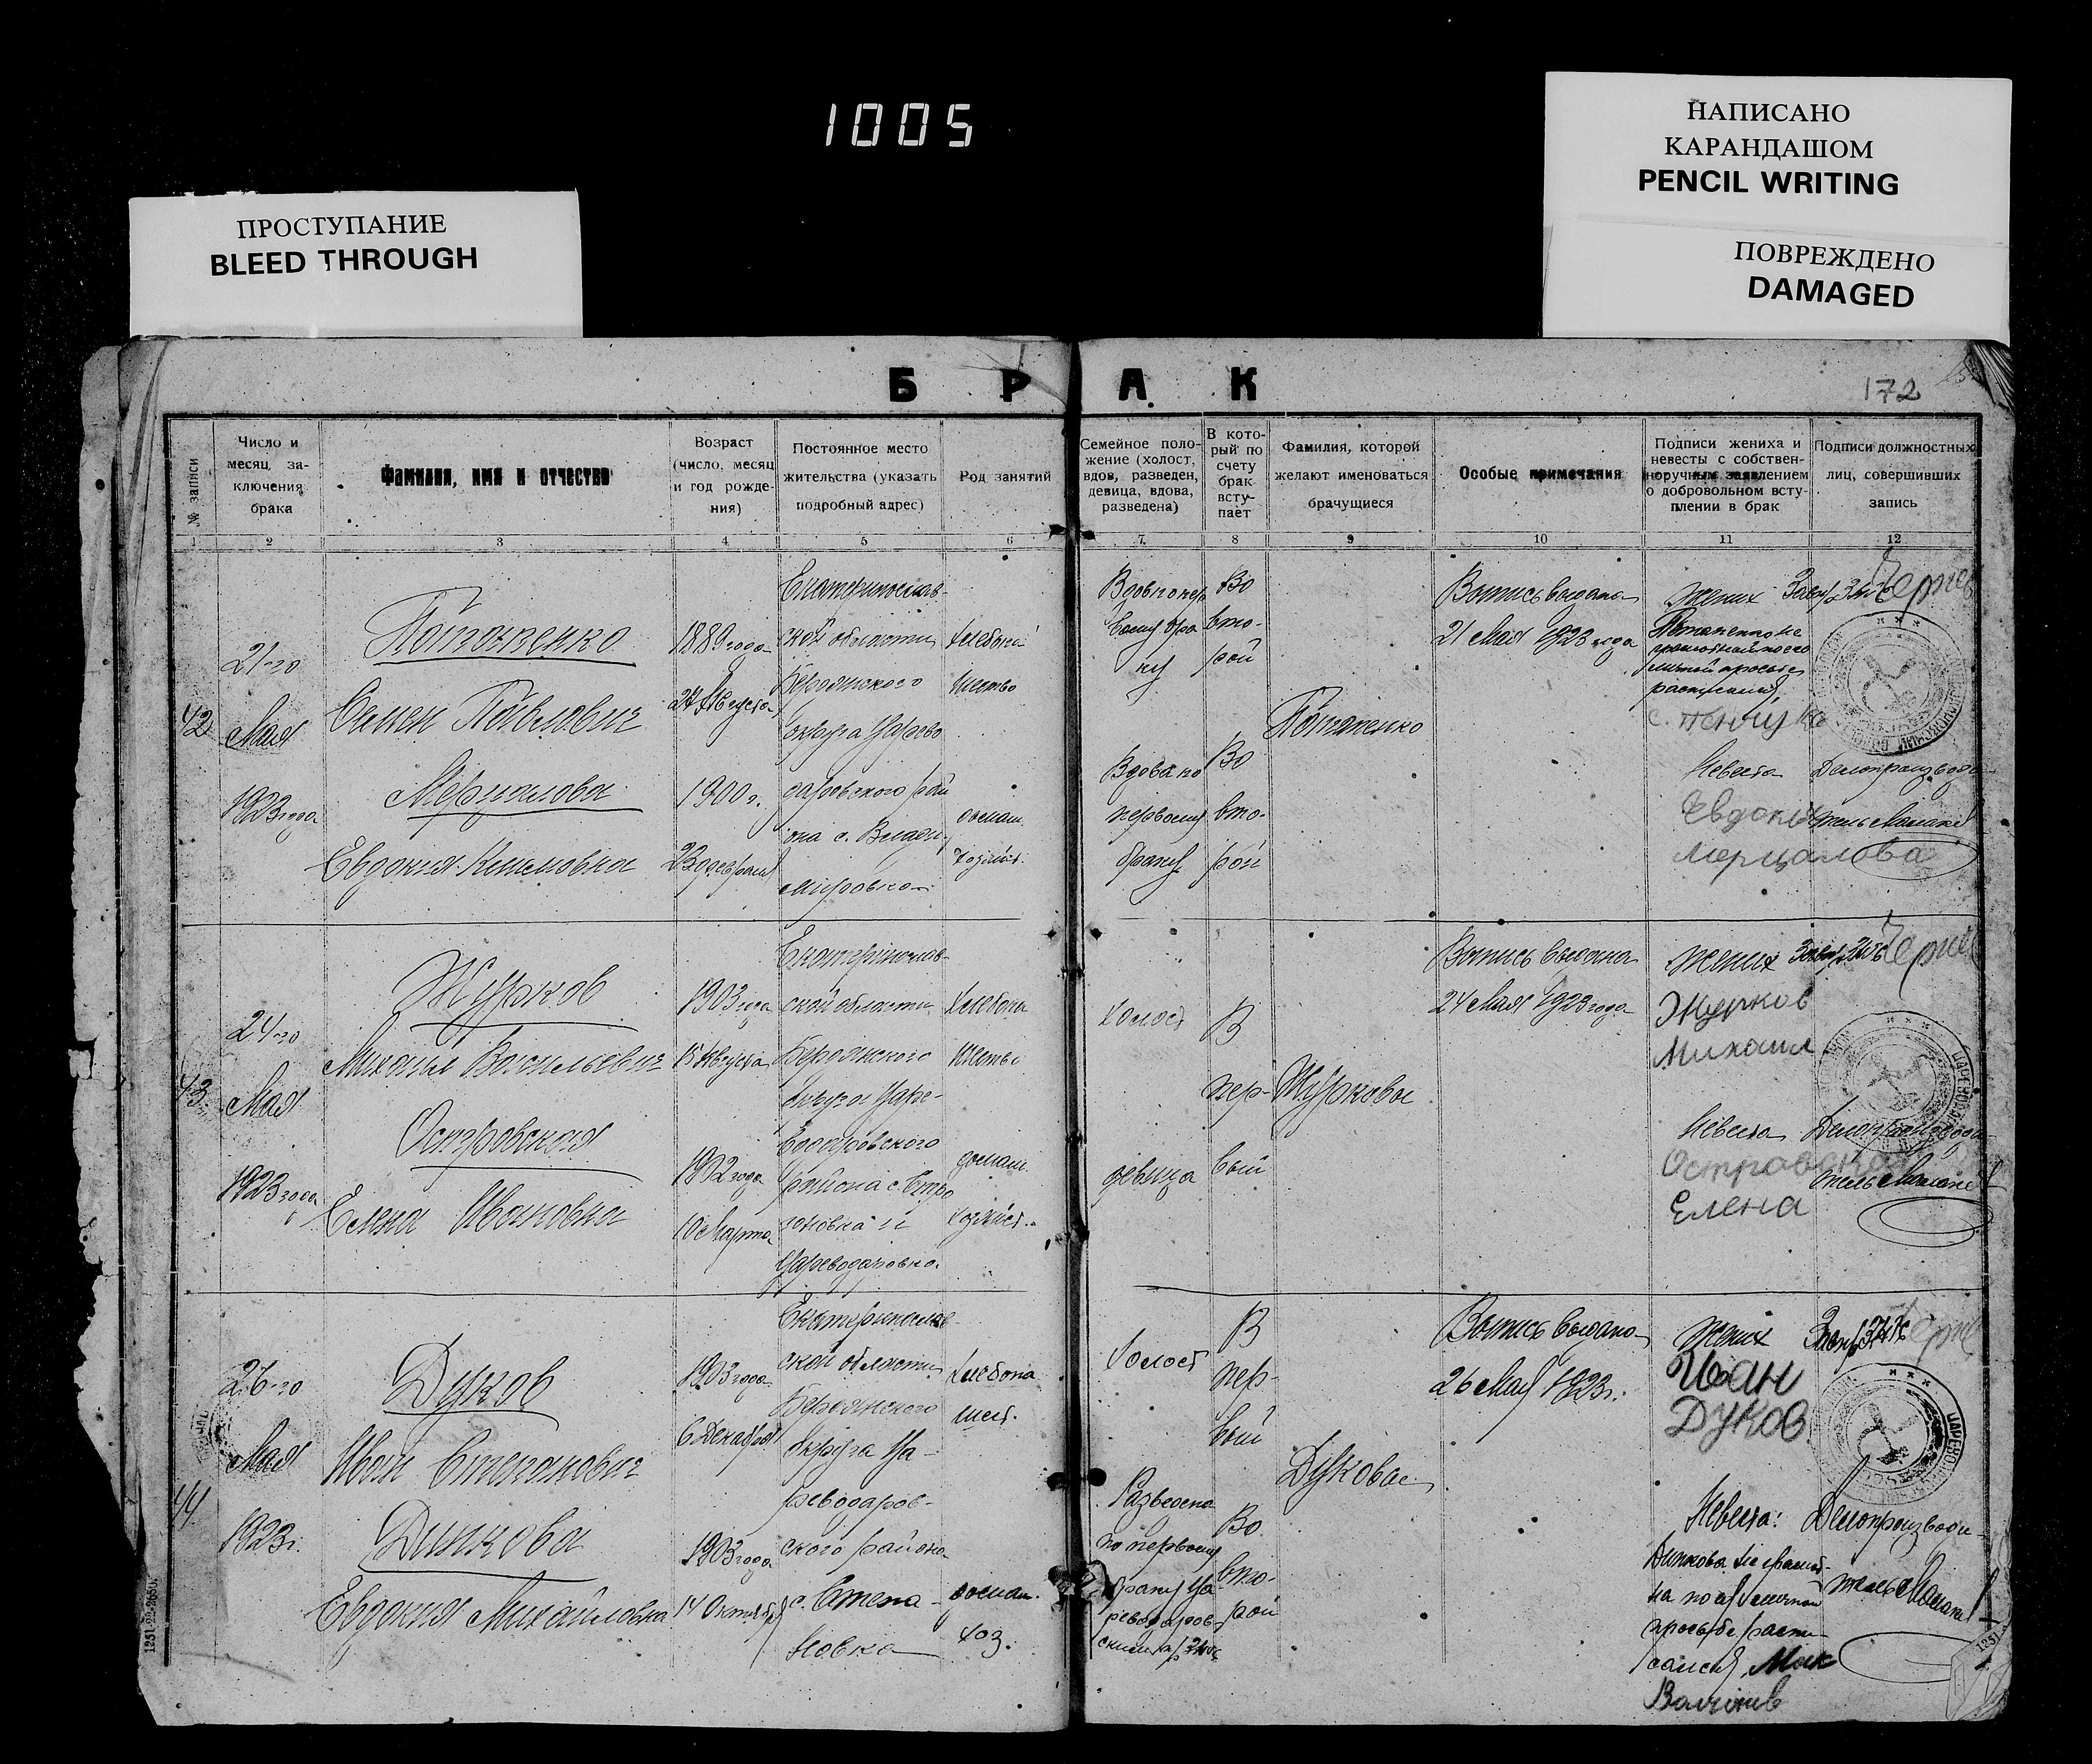 1005
НАПИСАНО
КАРАНДАШОМ
PENCIL WRITING
ПОВРЕЖДЕНО
DAMAGED
ПРОСТУПАНИЕ
BLEED THROUGH
БРАК
172
№ записи
Число и
месяц за-
ключения
брака
Фамилия, имя и отчество
Возраст
(число, месяц
и год рожде-
ния)
Постоянное место
жительства (указать
подробный адрес)
Род занятий
Семейное поло-
жение (холост,
вдов, разведен,
девица, вдова,
разведена)
В кото-
рый по
счету
брак
всту-
пает
Фамилия, которой
желают именоваться
брачущиеся
Особые примечания
Подписи жениха и
невесты с собствен-
норучным заявлением
о добровольном всту-
плении в брак
Подписи должностных
лиц, совершивших
запись
1 2 3 4 5 6 7 8 9 10 11 12
42
21-го
Мая
1923 года
Потапенко
Семен Павлович
Мерцалова
Евдокия
1889 года
24 Августа
1900 г.
23 февраля
Екатеринослав-
ской области
Бердянского
округа Царево
даровского рай
она с. Влади-
мировка
хлебопа
шество
домаш.
хозяйст.
Вдов по пер
вому бра
ку
Вдова по
первому
браку
Во
вто-
рой
Во
вто-
рой
Потапенко
Выпись выдана
21 Мая 1923 года
Жених
Потапенко не
грамотный по его
личной просьбе
расписался
Невеста
Евдокия
Мерцалова
Делопроизводи-
тель
43
24-го
Мая
1923 года
Журков
Михаил Васильевич
Островская
Елена Ивановна
1903 года
15 Августа
1902 года
10 Марта
Екатеринослав-
ской области
Бердянского
округа Царе-
водаровского
района с. Стро
гановка и
Цареводаровка.
хлебопа
шество
домаш.
хозяйст.
холост
девица
В
пер-
вый
Журковы
Выпись выдана
24 Мая 1923 года
Жених
Журков
Михаил
Невеста
Островская
Елена
Делопроизводи-
тель
44
26-го
Мая
1923 г.
Дуков
Иван Степанович
Динкова
Евдокия Михайловна
1903 года
6 Декабря
1903 года
14 Октября
Екатеринослав-
ской области
Бердянского
округа Ца-
реводаров-
ского района
с. Степа-
новка
хлебопа
шест.
домаш.
хоз.
Холост
Разведена
по первому
браку Ца-
реводаров-
ским
В
пер-
вый
Во
вто-
рой
Дуковы
Выпись выдана
26 Мая 1923 г.
Жених
Иван
Дуков
Невеста:
Динкова неграмот-
на по ея личной
просьбе распи-
сался
Делопроизводи-
тель
1251-22-2650.